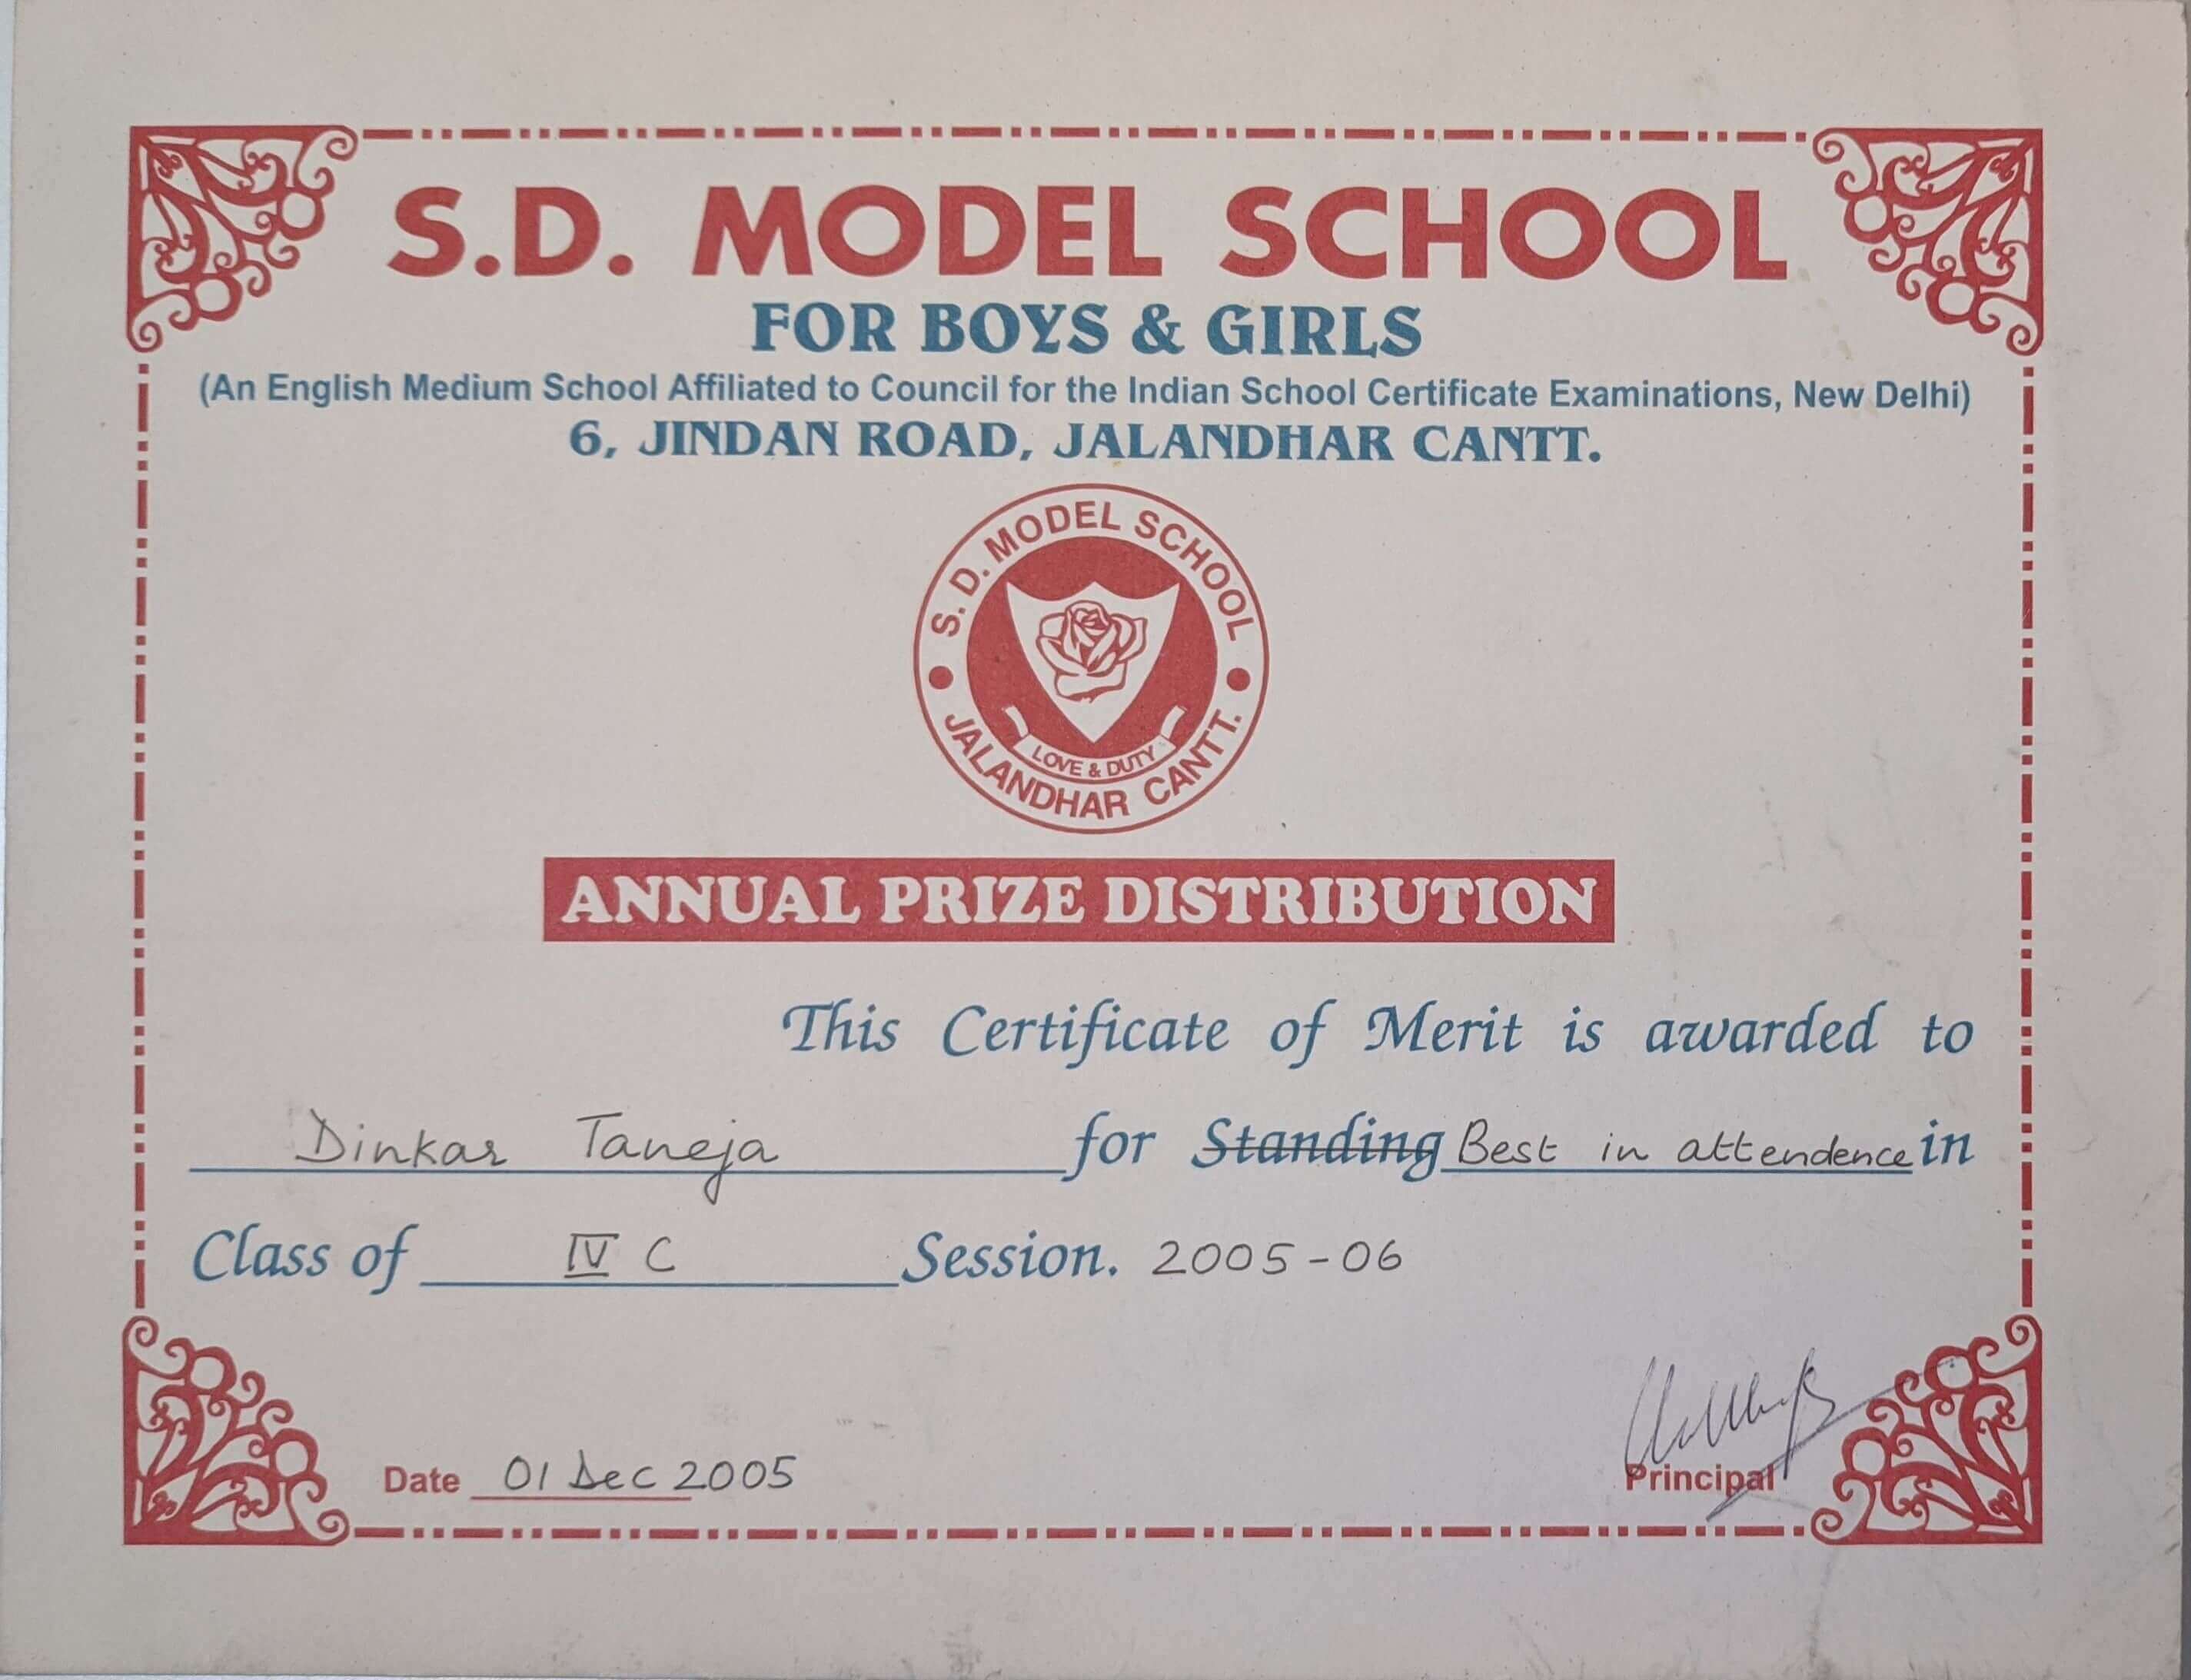 S.D. MODEL SCHOOL
FOR BOYS & GIRLS
(An English Medium School Affiliated to Council for the Indian School Certificate Examinations, New Delhi)
6, JINDAN ROAD, JALANDHAR CANTT.
S. D. MODEL SCHOOL
LOVE & DUTY
JALANDHAR CANTT.
ANNUAL PRIZE DISTRIBUTION
This Certificate of Merit is awarded to
Dinkar Taneja for Standing Best in attendence in
Class of IV C Session. 2005-06
Date 01 Dec 2005
Principal